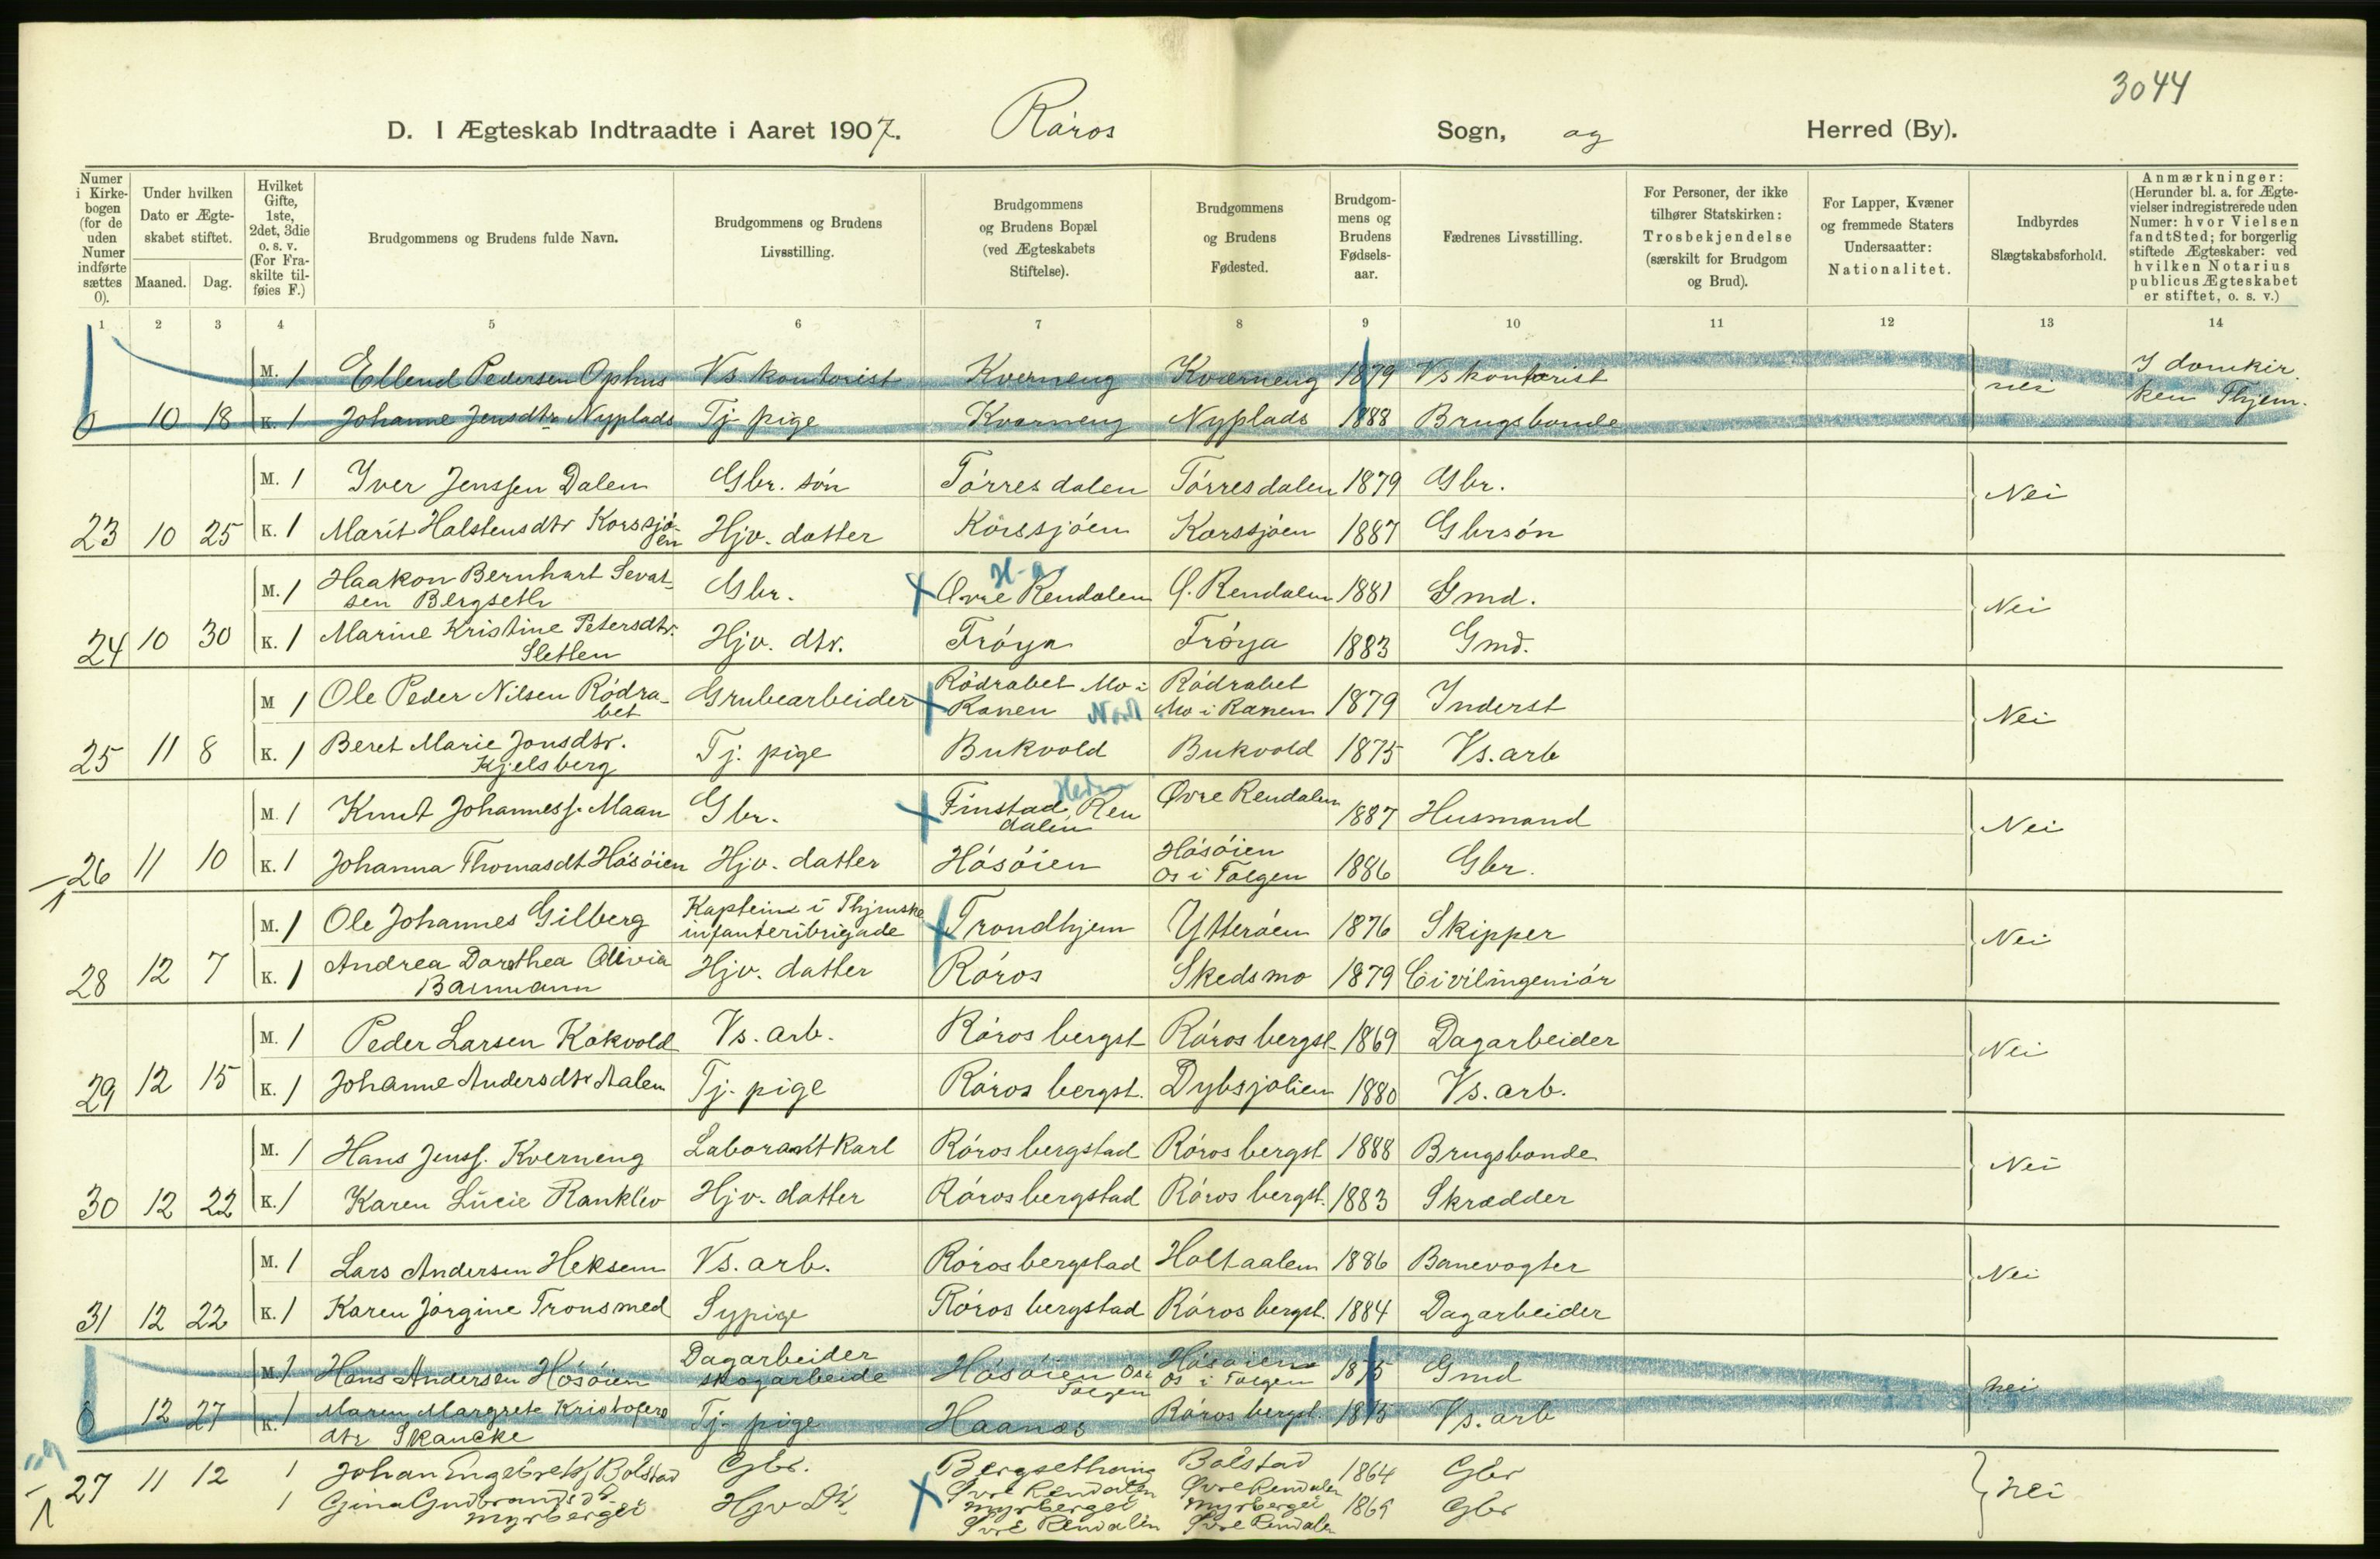 3044
D. I Ægteskab Indtraadte i Aaret 1907. Røros Sogn, og Herred (By).
Numer i Kirkebogen (for de uden Numer indførte sættes 0).
Under hvilken Dato er Ægteskabet stiftet.
Maaned. Dag.
Hvilket Gifte, 1ste, 2det, 3die o. s. v. (For Fraskilte tilføies F.)
Brudgommens og Brudens fulde Navn.
Brudgommens og Brudens Livsstilling.
Brudgommens og Brudens Bopæl (ved Ægteskabets Stiftelse).
Brudgommens og Brudens Fødested.
Brudgommens og Brudens Fødselsaar.
Fædrenes Livsstilling.
For Personer, der ikke tilhører Statskirken: Trosbekjendelse (særskilt for Brudgom og Brud).
For Lapper, Kvæner og fremmede Staters Undersaatter: Nationalitet.
Indbyrdes Slægtskabsforhold.
Anmærkninger: (Herunder bl. a. for Ægtevielser indregistrerede uden Numer: hvor Vielsen fandt Sted; for borgerlig stiftede Ægteskaber: ved hvilken Notarius publicus Ægteskabet er stiftet, o. s. v.)
1 2 3 4 5 6 7 8 9 10 11 12 13 14
M. 1 Ellend Pedersen Ophus Vs. kontorist Kverneng Kverneng 1879 Vs kontorist nei I domkirken Thjem.
0 10 18 K. 1 Johanne Jensdtr Nyplads Tj. pige Kverneng Nyplads 1888 Brugsbonde
M. 1 Iver Jenssen Dalen Gbr. søn Tørresdalen Tørresdalen 1879 Gbr. Nei
23 10 25 K. 1 Marit Halstensdtr Korssjøen Hjv. datter Korssjøen Korssjøen 1887 Gbrsøn
M. 1 Haakon Bernhart Sevatsen Bergseth Gbr. H-a Øvre Rendalen Ø. Rendalen 1881 Gmd. Nei
24 10 30 K. 1 Marine Kristine Petersdtr. Sletten Hjv. dtr. Frøya Frøya 1883 Gmd.
M 1 Ole Peder Nilsen Rødrabet Grubearbeider Rødrabet Mo i Ranen Nordl Rødrabet Mo i Ranen 1879 Inderst Nei
25 11 8 K. 1 Beret Marie Jonsdtr. Kjelsberg Tj. pige Bukvold Bukvold 1875 Vs. arb
M. 1 Knut Johannesf. Maan Gbr. Finstad, Rendalen Hedm Øvre Rendalen 1887 Husmand Nei
26 11 10 K. 1 Johanna Thomasdt. Høsøien Hjv. datter Høsøien Høsøien Os i Tolgen 1886 Gbr.
M. 1 Ole Johannes Gilberg Kaptein i Thjemske infanteribrigade Trondhjem Ytterøen 1876 Skipper Nei
28 12 7 K. 1 Andrea Dorothea Olivia Hjv. datter Røros Skedsmo 1879 Civilingeniør
M. 1 Peder Larsen Kokvold Vs. arb. Røros bergst Røros bergst 1869 Dagarbeider Nei
29 12 15 K. 1 Johanne Andersdtr Aalen Tj. pige Røros bergst. Dybsjølien 1880 Vs. arb.
M. 1 Hans Jensf. Kverneng Laborantkarl Røros bergstad Røros bergst 1888 Brugsbonde Nei
30 12 22 K. 1 Karen Lucie Ranklev Hjv. datter Røros bergstad Røros bergst. 1883 Skrædder
M. 1 Lars Andersen Heksem Vs. arb. Røros bergstad Holtaalen 1886 Banevogter Nei
31 12 22 K. 1 Karen Jørgine Tronsmed Sypige Røros bergstad Røros bergst. 1884 Dagarbeider
M. 1 Hans Andersen Høsøien Dagarbeider skogarbeide Høsøien Os i Tolgen Høsøien Os i Tolgen 1875 Gmd nei
0 12 27 K. 1 Maren Margrete Kristofersdtr Skancke Tj. pige Haanes Røros bergst. 1875 Vs. arb
27 11 12 1 Johan Engebretsf. Bolstad Gbr. Bergsethaug Øvre Rendalen Bolstad Øvre Rendalen 1864 Gbr nei
1 Gina Gudbrandsdtr Myrberget Hjv Dtr Myrberget Øvre Rendalen Myrberget Øvre Rendalen 1869 Gbr